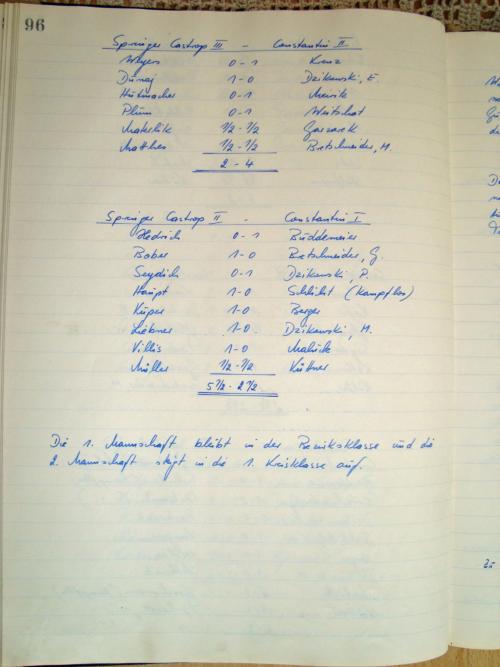 96
Springer Castrop III - Constantin II
Weyers 0-1 Kranz
Dunaj 1-0 Dzikowski, E
Hutmacher 0-1
Plüm 0-1
1/2-1/2
Matthes 1/2-1/2 Bretschneider, H.
2-4
Springer Castrop II - Constantin I
Hedrich 0-1 Büddemeier
Bober 1-0 Bretschneider, G.
Seydich 0-1 Dzikowski, P.
Haupt 1-0 Schlicht (kampflos)
Küper 1-0 Berger
Liebner 1-0 Dzikowski, H.
1-0
Müller 1/2-1/2 Küttner
5 1/2 - 2 1/2
Die 1. Mannschaft bleibt in der Bezirksklasse und die
2. Mannschaft steigt in die 1. Kreisklasse auf.